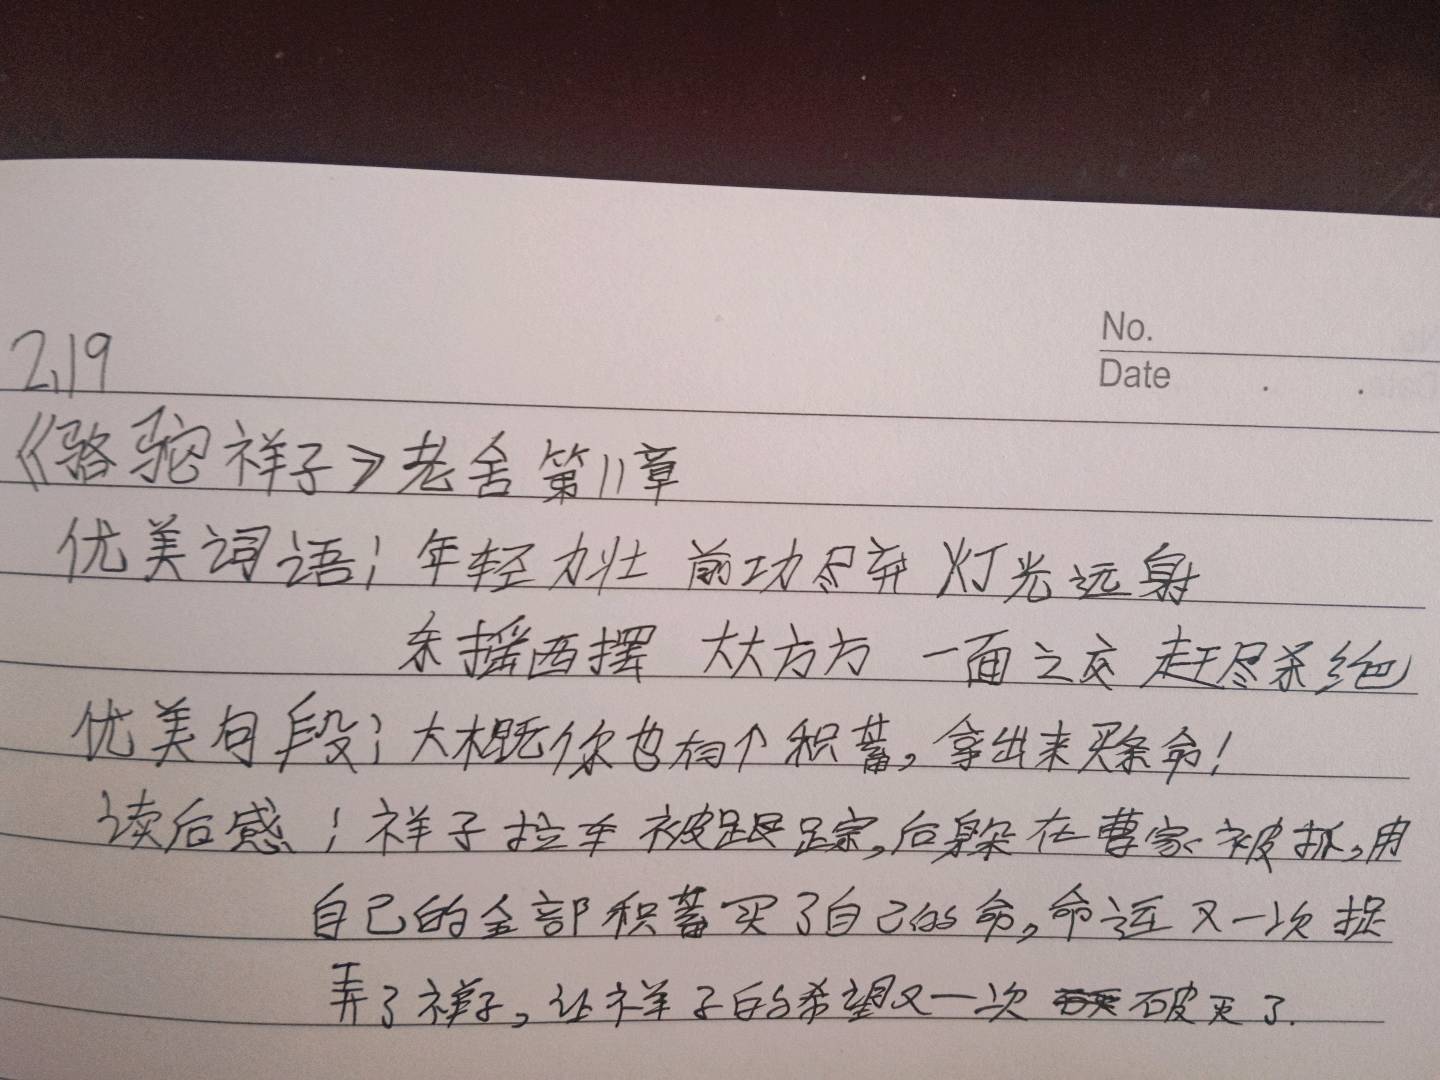 No.
Date . .
2.19
《骆驼祥子》老舍 第11章
优美词语: 年轻力壮 前功尽弃 灯光远射
东摇西摆 大大方方 一面之交 赶尽杀绝
优美句段: 大概你也有个积蓄,拿出来买条命!
读后感: 祥子拉车被跟踪,后躲在曹家被抓,用
自己的全部积蓄买了自己的命,命运又一次捉
弄了祥子,让祥子的希望又一次破灭了.